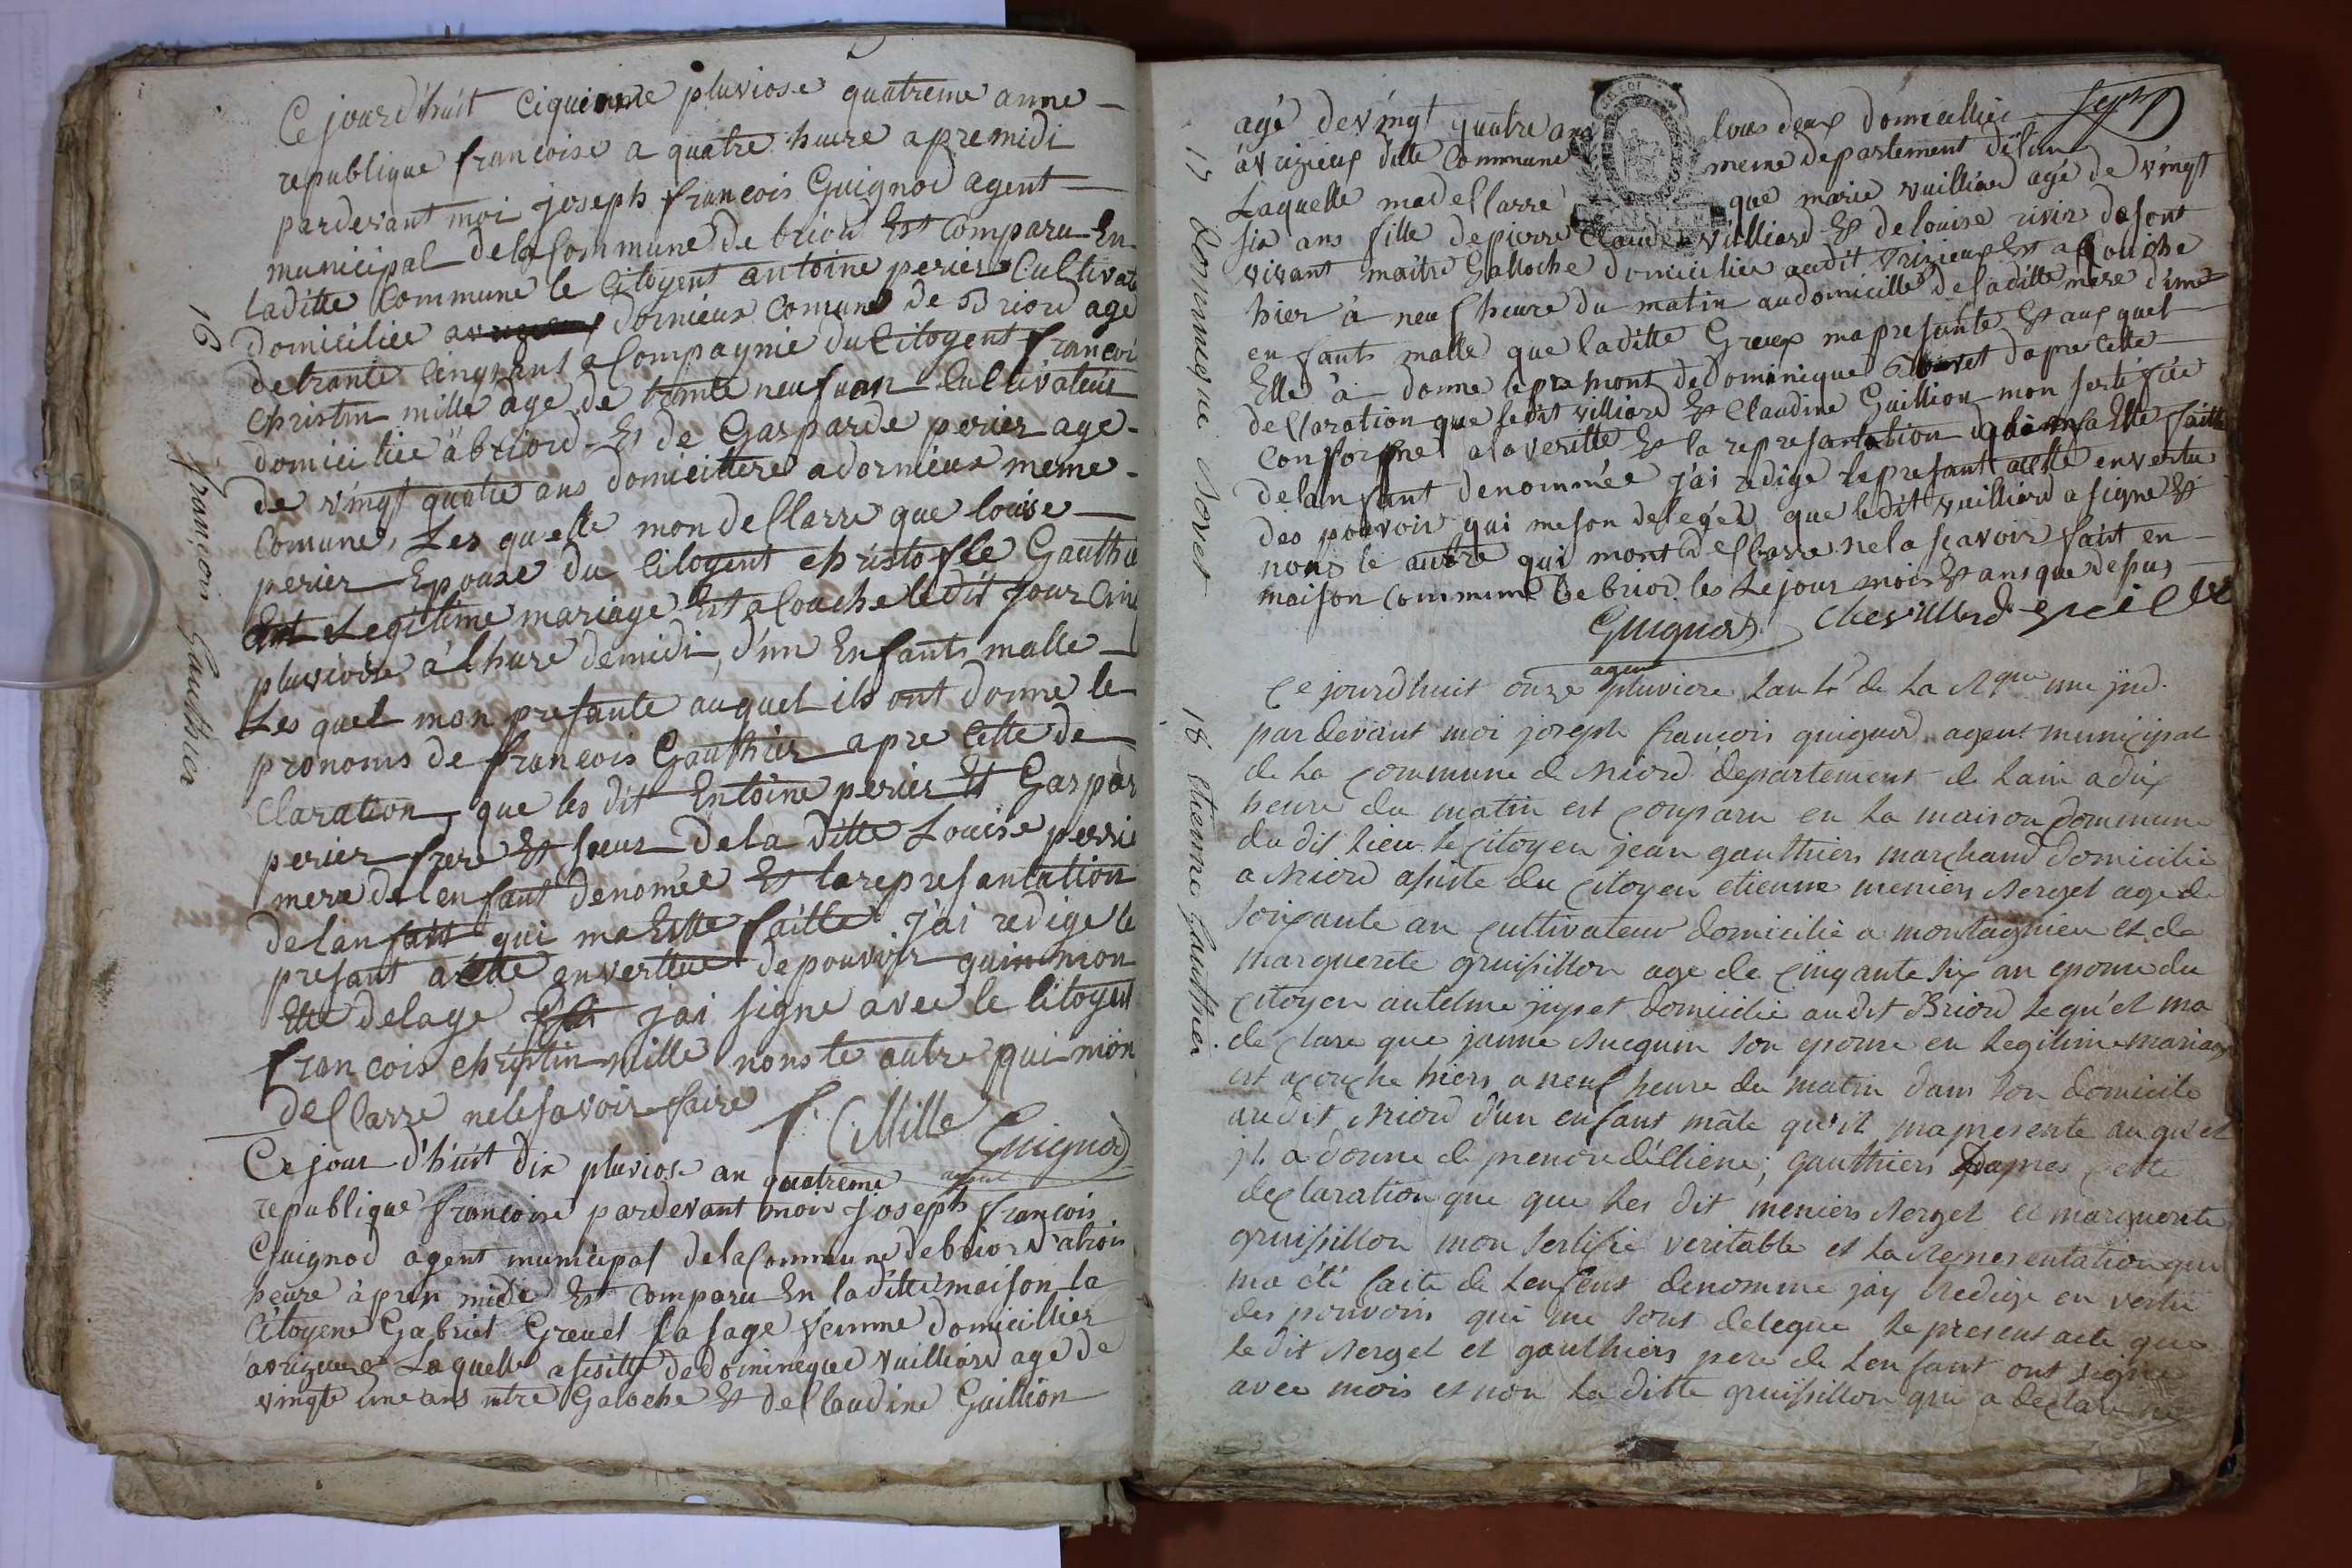 Ce jourd'huit Ciquieme pluviose quatreme anne
republique francoise a quatre heure apremidi
pardevant moi joseph francois Guignod agent
municipal dela Commune de briord Est Comparu En
laditte Commune le Citoyent antoine perier Cultivat
domiciliée dornieux Comune de Briord agé
de trante Cinq ans a Compaynie du Citoyent francoi
Christin mille age de trante neuf ans Cultivateur
domiciliée à briord Et de Gasparde perier age
de vingt quatre ans domicilliere a dornieux meme
Comune, Les quelle mon deClarre que louise
perier Epouse du Citoyent christofle Gauthie
Ent Legitime mariage Est aCouche ledit jour Cinq
pluviose à lhure demidi, d'un Enfants malle
Les quel mon presante auquel ils ont donne le
pronoms de francois Gauthier apre Cette de
Claration que les dit Entoine perier Et Gaspar
perier frere Et seur dela ditte Louise perie
mere del enfant denomée Et la represantation
delanfant qui ma Ette faitte j'ai redige le
presant acte envertue depouvoir qui mon
Ette delage j'ai signe avec le Citoyent
francois christin mille nons te autre qui mon
deClarre nelesavoir faire
f. C. Mille Guignod
agent
16 francois Gauthier
Ce jour d'huit dix pluviose an quatreme
republique francoise pardevant moi joseph francois
Guignod agent municipal dela Commune debriord atrois
heure àpren midi Est Comparu En laditte maison la
Citoyene Gabriel Greuet sa sage femme domicillier
avrizieux Laquelle asisitte dedomineque Vuilliard age de
vingte une ans Galoche Et deClaudine Guillion
sept
agé devingt quatre ans tous deux domicilliée
àvrizieux ditte Commune meme departement de lain
Laquelle madeClarre que marie vuilliard agé de vingt
six ans fille depierre Claude Villiard Et de louise rivier defont
vivant maitre Galloche domiciliée audit vrizieux Est aCouiche
hier à neuf heure du matin audomicille deladitte mere d'une
enfants malle que laditte Greux mapresante Et auquel
Elle à donne lepremont dedominique Bovet dapre Cette
deClaration que ledit villiard Et Claudine Guillion mon sertifiée
Conforme alaveritte Et la represantation qui ma Ette faitte
delanfant denommée j'ai redige lepresant acte envertu
des pouvoir qui meson delegés que ledit vuilliard a signe Et
nons le autre qui mont deClarre nela scavoir fait en
maison Commune de briord les Lejour mois Et ans que depus
Guignod
agent
17 Dominique Bovet
Ce jourdhuit onze pluviose Lan 4 de La Rque une jnd.
pardevant moi joseph francois guignod agent municipal
de La Commune de Briord departement de Lain a dix
heure du matin est Conparu en La maison Commune
du dit Lieu le Citoyen jean gauthiers marchand domicilie
a Briord assiste du Citoyen etienne meniers Berget age de
soixante an Cultivateur domicilie a montagnieu et de
marguerete gruissillon age de Cinqante six an epouse du
Citoyen antelme domicilie audit Briord Lequ'el ma
de Clare que janne Bucquin son epouse en Legitime mariage
est acouche hiers a neuf heure du matin dans son domicile
audit Briord d'un enfant mâle qu'il ma presente au qu'el
jl a donne le prenon d'étiene gauthiers Dapres Cette
declaration que que Les dit meniers Berget et marguerite
gruissillon mon sertifie veritable et La Representation qui
ma été faite de Lenfent denomme jay Redige en vertu
des pouvoirs qui me sont delegue Le present acte que
Le dit Berget et gauthiers pere de Lenfant ont signe
avec mois et non La ditte gruissillon qui a declare ne
18 etienne Gauthier